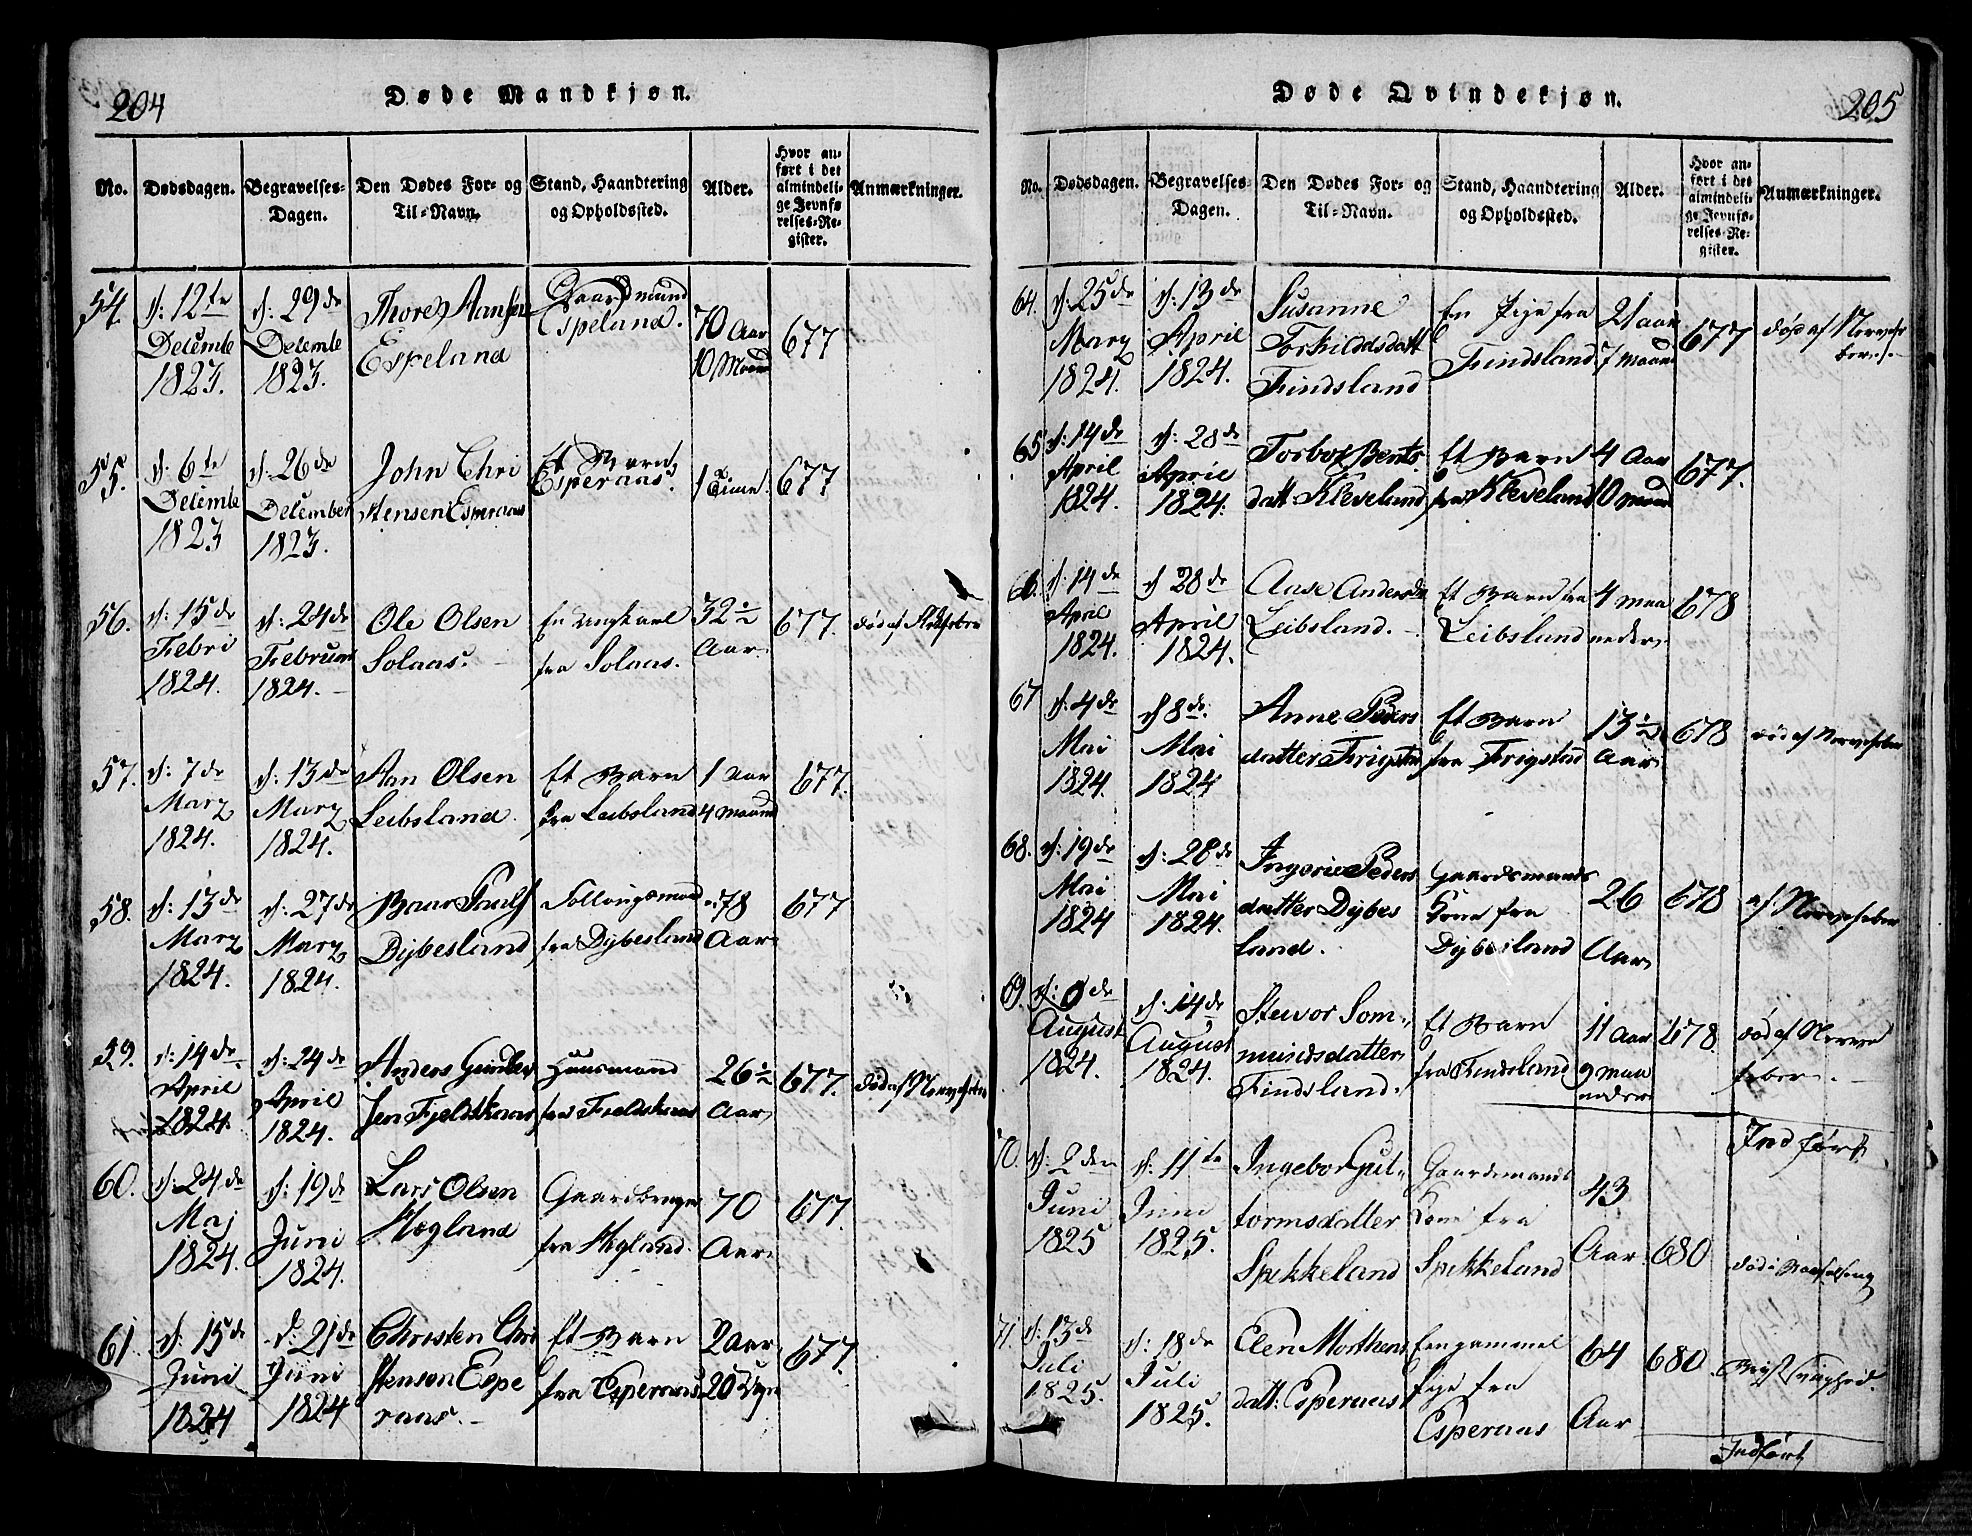 204
Døde Mandkjøn.
No.
Dødsdagen.
Begravelses-
Dagen.
Den Dødes For- og
Til-Navn.
Stand, Haandtering
og Opholdssted.
Alder.
Hvor an-
ført i det
almindeli-
ge Jevnfø-
relses-Re-
gister.
Anmærkninger.
54.
d: 12te
Decembr
1823.
d: 29de
Decembr
1823.
Thore Aansen
Espeland
Gaardmand
Espeland.
70 Aar
10 Maan
677
55.
d: 6te
Decembr
1823
d: 26de
December
1823.
John Chri
stensen Esperaas
Et Barn
Esperaas.
1 Time.
677
56.
d: 15de
Febri
1824.
d: 24de
Februar
1824.
Ole Olsen
Solaas.
En Ungkarl
fra Solaas.
32 ½
Aar.
677.
død af
57.
d: 7de
Marz
1824.
d: 13de
Marz
1824.
Aan Olsen
Leibsland
Et Barn
fra Leibsland
1 Aar
4 Maand
677.
58.
d: 13de
Marz
1824.
d: 27de
Marz
1824.
Baar Pauls
Dybesland
Follougsmand
fra Dybesland
78
Aar
677
59.
d: 14de
April
1824.
d: 24de
April
1824.
Anders Gunder
sen Fjeldskaar
Huusmand
fra Fjeldskaar
26 ½
Aar
677.
død af Nervefeber
60.
d: 24de
Maj
1824.
d: 19de
Juni
1824.
Lars Olsen
Høgland
Gaardbruger
fra Høgland.
70
Aar
677.
61
d: 15de
Juni
1824
d: 21de
Juni
1824
Christen Chri
stensen Espe
raas.
Et Barn
fra Esperaas
2 Aar
20 Dage
677.
205
Døde Qvindekjøn.
No.
Dødsdagen.
Begravelses-
Dagen.
Den Dødes For- og
Til-Navn.
Stand, Haandtering
og Opholdssted.
Alder.
Hvor an-
ført i det
almindeli-
ge Jevnfø-
relses-Re-
gister.
Anmærkninger.
64.
d: 25de
Marz
1824.
d: 13de
April
1824.
Susanne
Torkildsdatt
Findsland
En Pige fra
Findsland
21 aar
7 Maan
677
død af Nervefe
ber.
65
d: 14de
April
1824.
d: 28de
April
1824.
Torbor Bents
datt: Kleveland
Et Barn
fra Kleveland
4 Aar
10 Maan
677.
66.
d: 14de
April
1824.
d 28de
April
1824.
Anse Andersda
Leibsland.
Et Barn fra
Leibsland
4 Maa
neder
678
67
d: 4de
Mai
1824.
d 8de.
Mai
1824
Anne Peders
datter Frigstad
Et Barn
fra Frigstad
13 ½
Aar
678
død af Nervefeber
68.
d: 19de
Mai
1824
d: 28de
Mai
1824.
Ingerie Peders
datter Dybes
land.
Gaardsmands
Kone fra
Dybesland
26
Aar
678
af Nervefeber
69.
de
August
1824.
d: 14de
August
1824.
Steuvor Som-
mundsdatter
Findsland.
Et Barn
fra Findsland
11 Aar
9 Maa
neder
678.
død af Nerve
feber.
Indført
70.
d: 2den
Juni
1825
d: 11te
Juni
1825.
Ingebor Gut-
tormsdatter
Spikkeland
Gaardsmands
Kone fra
Spikkeland
43
Aar
680
død i Barselseng
71.
d: 13de
Juli
1825.
d: 18de
Juli
1825.
Elen Morthens
datt: Esperaas
En gammel
Pige fra
Esperaas
64
Aar
680
Brystsvaghed.
Indført